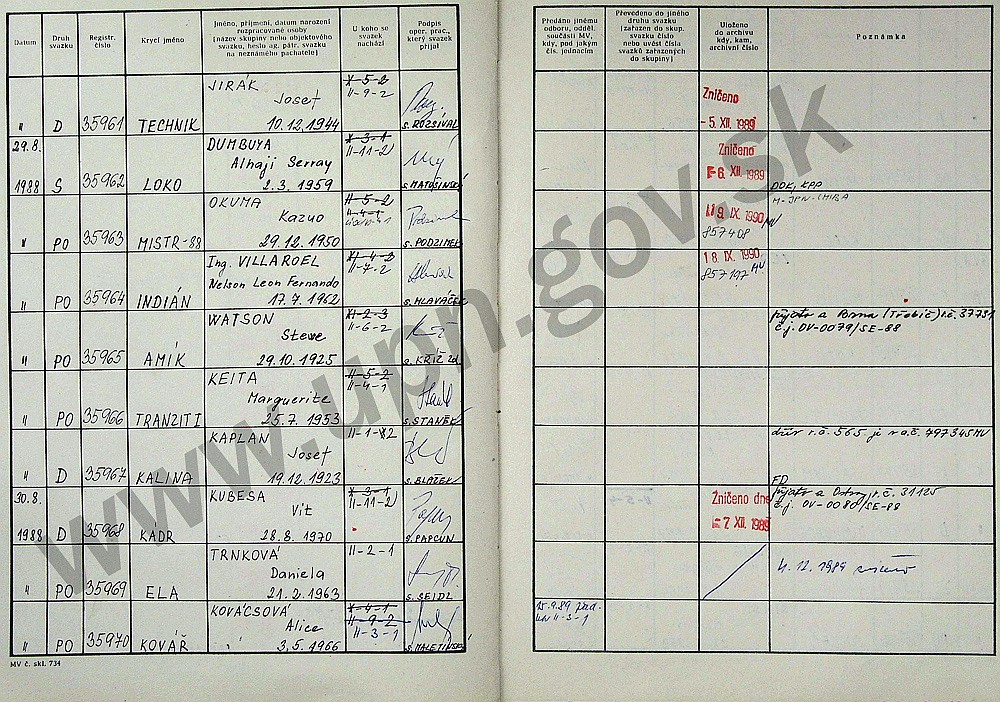 Datum
Druh svazku
Registr. číslo
Krycí jméno
Jméno, příjmení, datum narození
rozpracované osoby
(název skupiny nebo objektového
svazku, heslo ag. pátr. svazku
na neznámého pachatele)
U koho se
svazek
nachází
Podpis
oper. prac.,
který svazek
přijal
Předáno jinému
odboru, odděl.
součásti MV,
kdy, pod jakým
čís. jednacím
Převedeno do jiného
druhu svazku
(zařazen do skup.
svazku číslo
nebo uvést čísla
svazků zařazených
do skupiny)
Uloženo
do archivu
kdy, kam,
archivní číslo
Poznámka
JIRÁK X-5-2
Josef II-9-2
" D 35961 TECHNIK 10.12.1944 s. ROZSÍVAL
Zničeno
-5. XII. 1989
29.8. DUMBUYA X-3-1
Alhaji Serray II-11-2
1988 S 35962 LOKO 2.3.1959 s. MATUŠINSKÝ
Zničeno
-6. XII. 1989
DOK, KPP
OKUMA X-5-2
Kazuo
" PO 35963 MISTR-88 29.12.1950 s. PODZIMEK
19. IX. 1990
857408
Ing. VILLAROEL XI-4-2
Nelson Leon Fernando II-7-2
" PO 35964 INDIÁN 17.7.1962 s. HLAVÁČEK
18. IX. 1990
857197
WATSON XI-2-3
Steve II-6-2
" PO 35965 AMÍK 29.10.1925 s. KŘÍŽ
přijato z Brna (Třebíč) r.č. 37731
č.j. OV-0079/SE-88
KEITA X-5-2
Marguerite II-4-1
" PO 35966 TRANZITI 25.7.1953 s. STANĚK
KAPLAN II-1-2
Josef
" D 35967 KALINA 19.12.1923 s. BLAŽEK
dřív r.č. 565 je v a.č. 797345MV
FD
30.8. KUBESA X-3-1
Vít II-11-2
1988 D 35968 KÁDR 28.8.1970 s. PAPCUN
Zničeno dne
-7. XII. 1989
přijato z Ostravy r.č. 31125
č.j. OV-0080/SE-88
TRNKOVÁ II-2-1
Daniela
" PO 35969 ELA 21.2.1963 s. SEIDL
4.12.1989 zničeno
KOVÁCSOVÁ X-4-1
Alice II-9-2
" PO 35970 KOVÁŘ 3.5.1966 II-3-1 s. MALETINSKÝ
15.9.89 před.
II-3-1
MV č. skl. 734
www.upn.gov.sk